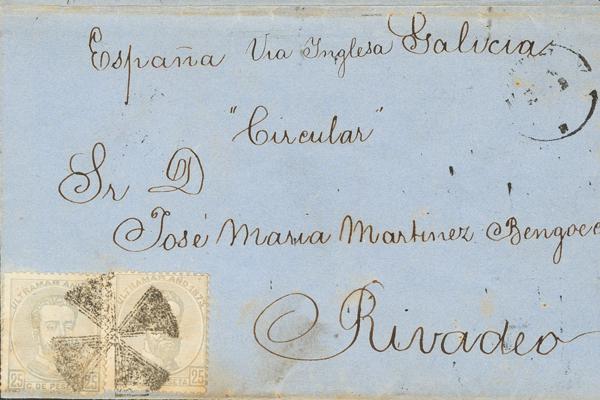 España Via Inglesa Galicia
"Circular"
Sr D
José Maria Martinez Bengoec
Rivadeo
ULTRAMAR AÑO
25 C. DE PESETA 25
25 PESETA 25